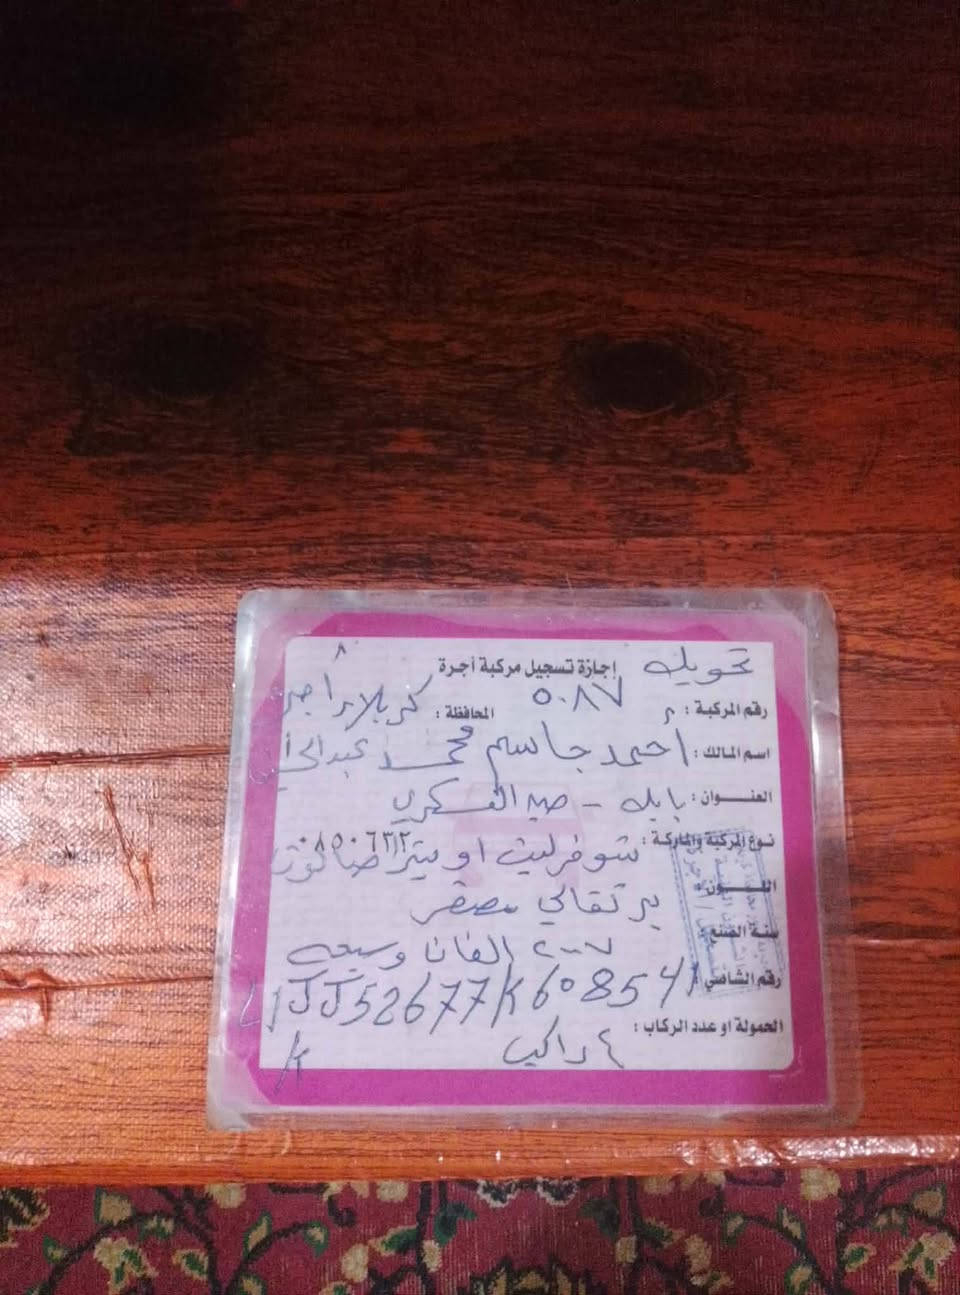 تحويل إجازة تسجيل مركبة أجرة ٨
رقم المركبة : ٥٠٨٧ م المحافظة : كربلاء اجرة
اسم المالك : أحمد جاسم محمد
العنـــوان : بابل - حي العسكري
نـوع المركبة والماركة : شوفرليت اوبترا صالون
٠٨٥٠٦٣٢
اللـــون : برتقالي مصفر
سنة الصنع : ٢٠٠٧ الفان وسبعه
رقم الشاصي :
الحمولة او عدد الركاب : ٤ راكب